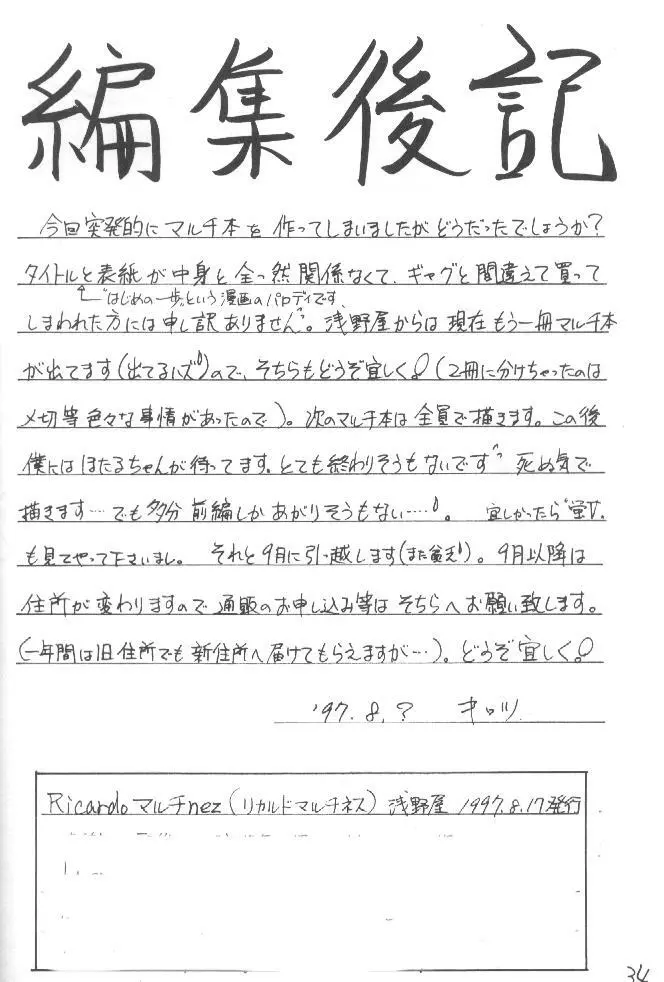 編集後記
今回突発的にマルチ本を作ってしまいましたがどうだったでしょうか?
タイトルと表紙が中身と全っ然関係なくて、ギャグと間違えて買って
"はじめの一歩"という漫画のパロディです、
しまわれた方には申し訳ありません^^。浅野屋からは現在もう一冊マルチ本
が出てます(出てるハズ)ので、そちらもどうぞ宜しく!(2冊に分けちゃったのは
〆切等色々な事情があったので)。次のマルチ本は全員で描きます。この後
僕にはほたるちゃんが待ってます。とても終わりそうもないです^^ 死ぬ気で
描きます…でも多分前編しかあがりそうもない……。 宜しかったら"蛍Ⅴ"
も見てやって下さいまし。 それと9月に引っ越します(また貧乏)。9月以降は
住所が変わりますので通販のお申し込み等はそちらへお願い致します。
(一年間は旧住所でも新住所へ届けてもらえますが…)。どうぞ宜しく!
'97.8.? キロツ
Ricardoマルチnez(リカルドマルチネス)浅野屋 1997.8.17発行
34